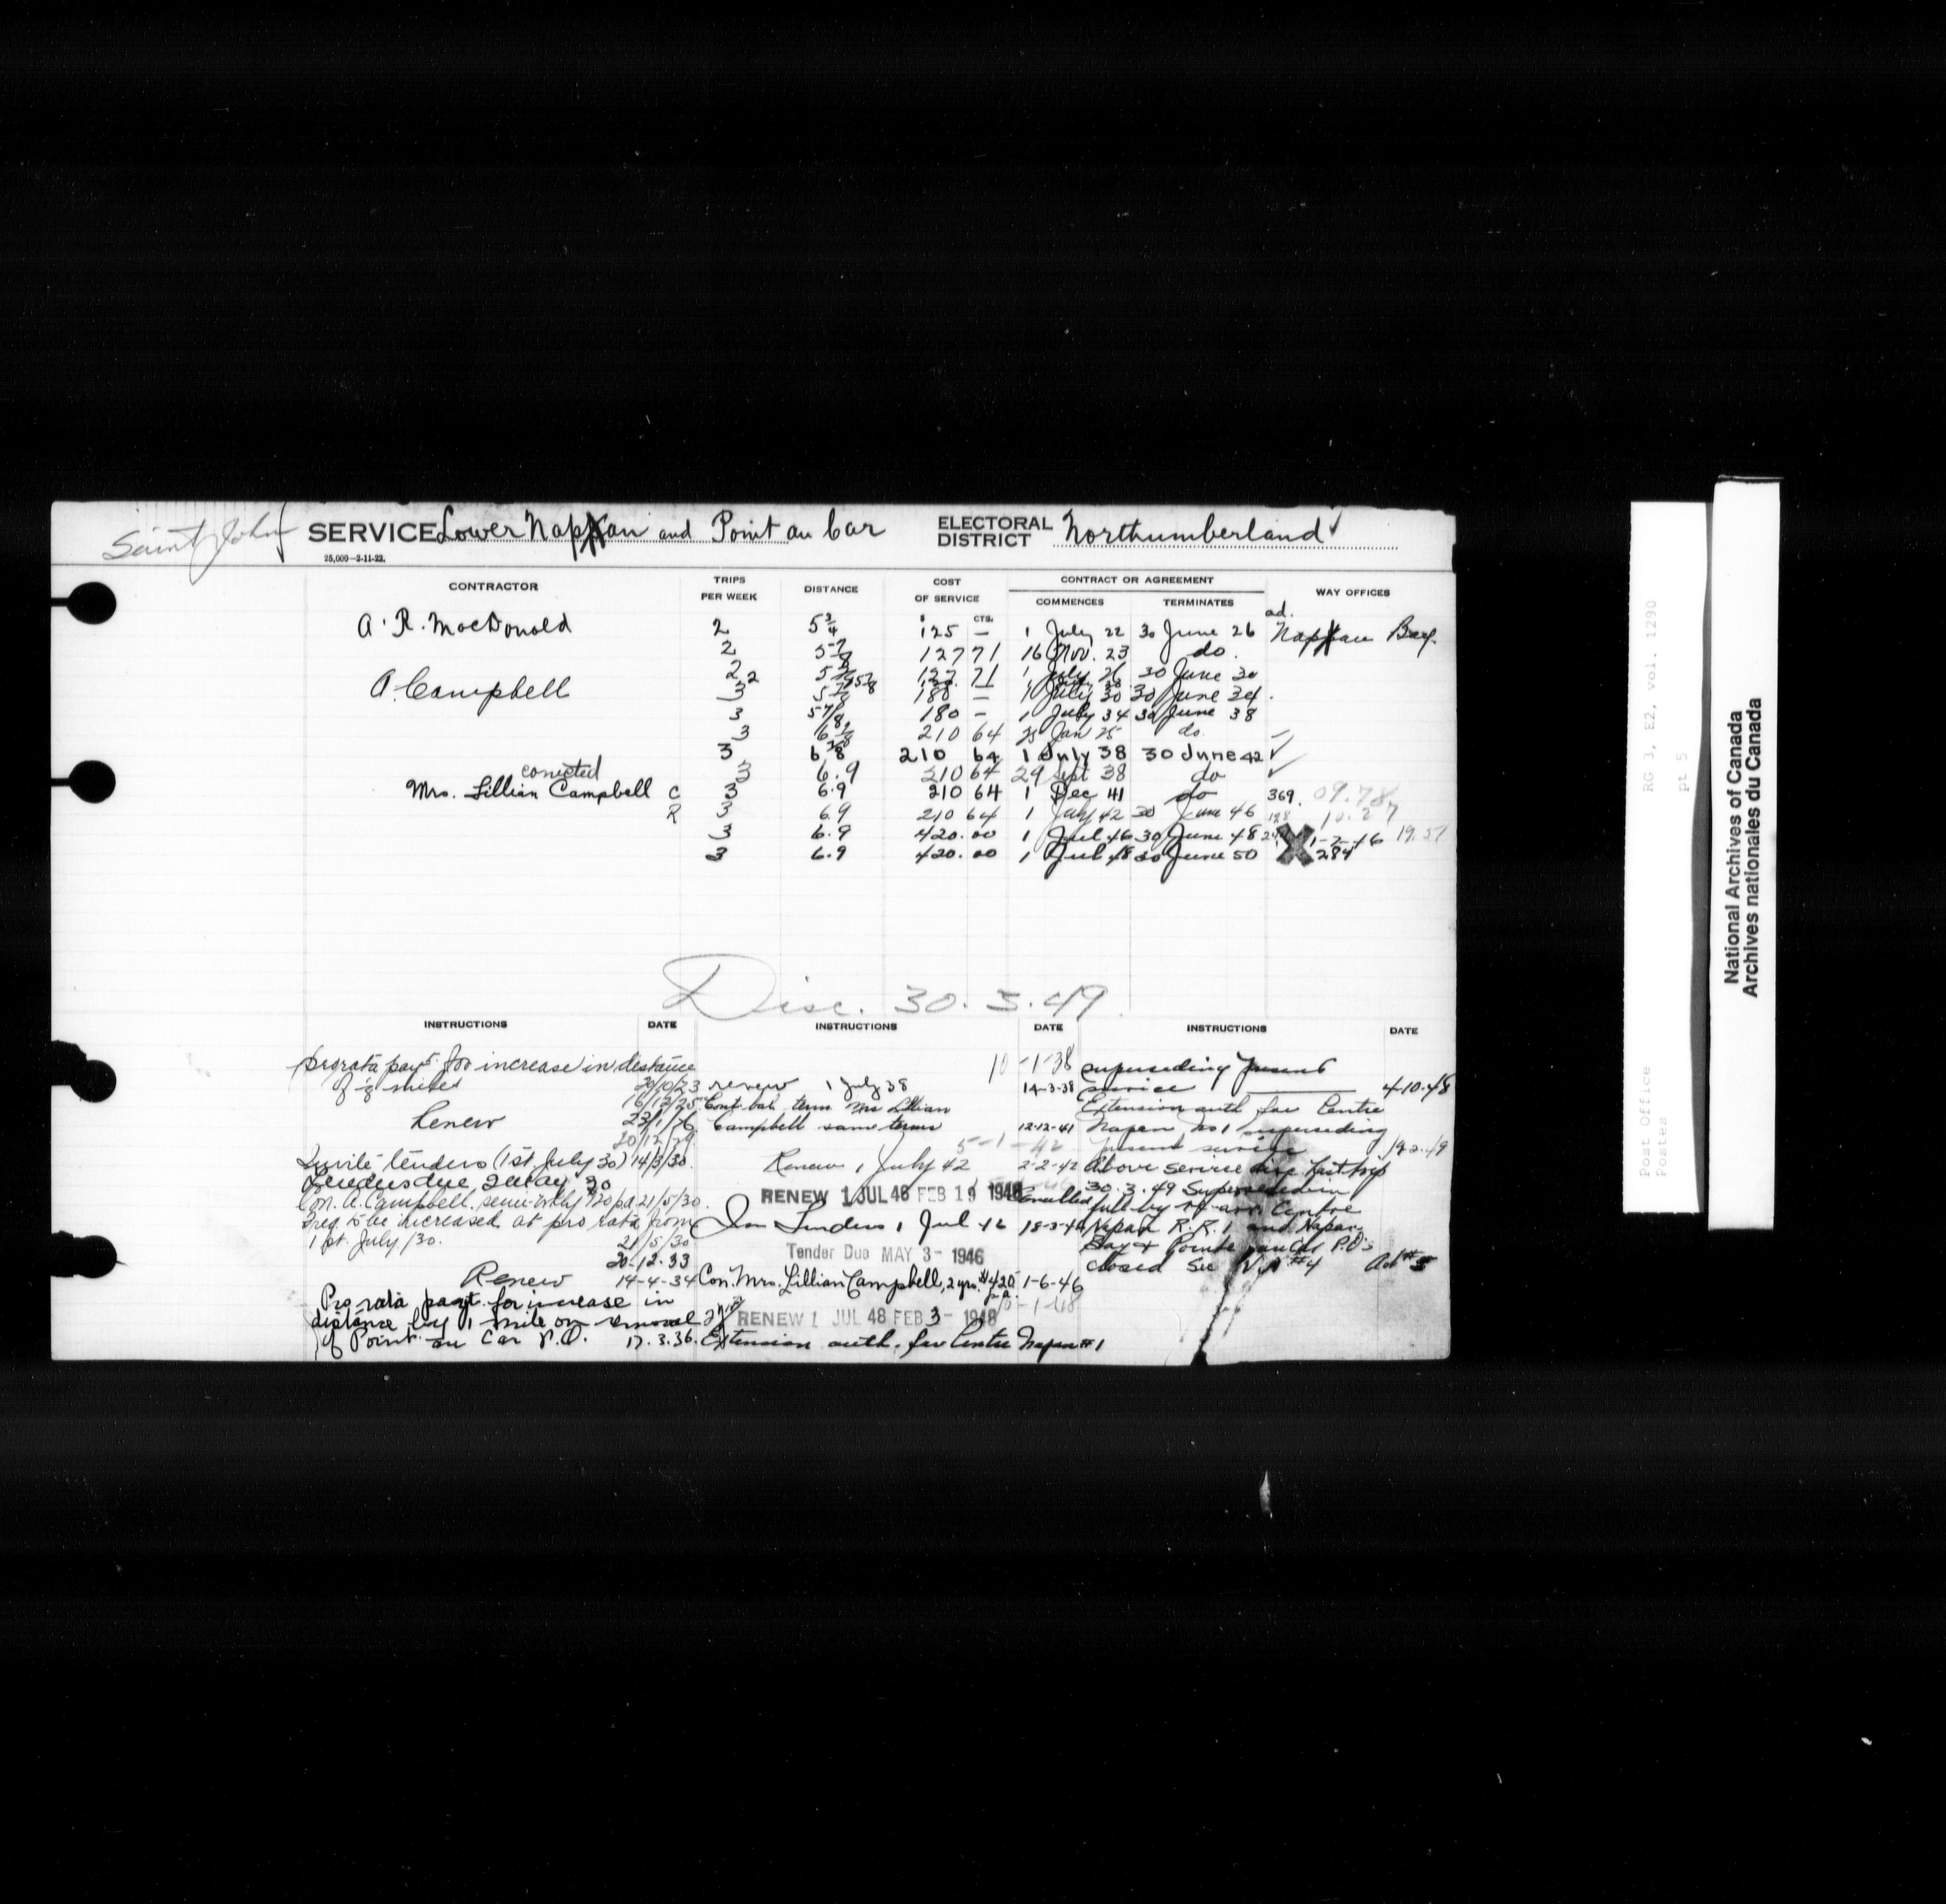 Saint John
SERVICE Lower Nappan and Point au Car
ELECTORAL DISTRICT Northumberland
25,000—2-11-22.
CONTRACTOR TRIPS PER WEEK DISTANCE COST OF SERVICE CONTRACT OR AGREEMENT WAY OFFICES
$ CTS. COMMENCES TERMINATES
A. R. MacDonald 2 5 3/4 125 — 1 July 22 30 June 26 Nappan Bay.
2 5 7/8 127 71 16 Nov. 23 do.
2 127 71 1 July 26 30 June 30
A. Campbell 3 5 7/8 180 — 1 July 30 30 June 34.
3 5 7/8 180 — 1 July 34 30 June 38
3 210 64 25 Jan do.
3 6 7/8 210 64 1 July 38 30 June 42
3 6.9 210 64 29 Sept 38 do
Mrs. Lillian Campbell C 3 6.9 210 64 1 Dec 41 do 369. 09.78
R 3 6.9 210 64 1 July 42 30 June 46
3 6.9 420.00 1 Jul 46 30 June 48 19.51
3 6.9 420.00 1 Jul 48 30 June 50 284
Disc. 30.3.49
INSTRUCTIONS DATE INSTRUCTIONS DATE INSTRUCTIONS DATE
prorata payt. for increase in distance
of 1/8 miles 30/10/23
16/12/25
Renew 23/1/26
20/12/29
Invite tenders (1st July 30) 14/3/30.
Tenders due 2 May 30
Con. A. Campbell. semi-wkly 120 pa 21/5/30.
Freq. to be increased at pro rata from
1st. July/30. 21/5/30
20-12-33
Renew 14-4-34
Pro rata payt. for increase in
distance by 1 mile on removal
of Point au Car P.O. 17.3.36.
10-1-38
renew 1 July 38 14-3-38
Cont. bal. term Mrs Lillian
Campbell same terms 12-12-41
5-1-42
Renew 1 July 42 2-2-42
RENEW 1 JUL 46 FEB 19 1946 Cancelled
Inv Tenders 1 Jul 46 18-3-46
Tender Due MAY 3- 1946
Con. Mrs. Lillian Campbell, 2 yrs. $420 p.a. 1-6-46
-1-48
2 yrs RENEW 1 JUL 48 FEB 3- 1948
Extension auth. for Centre Napan #1
superseding present
service 4-10-48
Extension auth for Centre
Napan No 1 superseding
present service
Above service disc. last trip
30.3.49 Superseded in
full by Centre
Napan R. R. 1 and Napan
Bay & Pointe au Car P.O's
closed See #4
RG 3, E2, vol. 1290
pt 5
Post Office
Postes
National Archives of Canada
Archives nationales du Canada